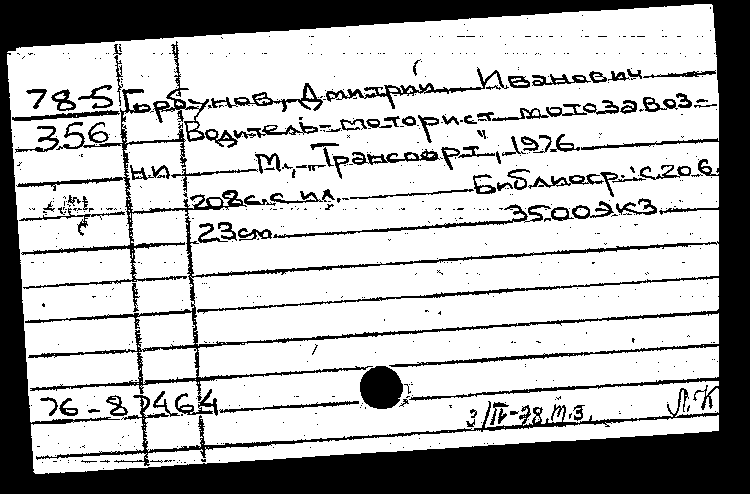 78-5 Горбунов, Дмитрий Иванович
356 Водитель-моторист мотозавоз-
н.п. М., „Транспорт", 1976.
208с. с ил. Библиогр.: с. 206.
23см. 3500экз.
76-87464
3/IV-78. т.з. Л.К